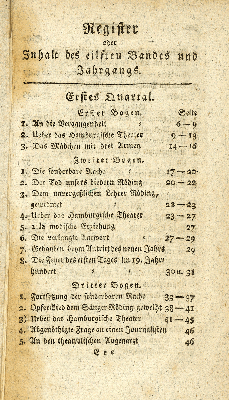 Register
oder
Inhalt des eilften Bandes und
Jahrgangs.
Erstes Quartal.
Erster Bogen. Seite
1. An die Vergangenheit 6 — 9
2. Ueber das Hamburgische Theater 9 — 13
3. Das Mädchen mit drei Armen 14 — 16
Zweiter Bogen.
1. Die sonderbare Rache 17 — 20
2. Der Tod unsers biedern Röding 20 — 22
3. Dem unvergeßlichen Lehrer Röding,
gewidmet 22 — 23
4. Ueber das Hamburgische Theater 23 — 27
5. modische Erziehung 27
6. Die verlangte Antwort 27 — 29
7. Gedanken beym Antritt des neuen Jahrs 29
8. Die Feuer des ersten Tages im 19. Jahr
hundert 30 u. 31
Dritter Bogen.
1. Fortsetzung der sonderbaren Rache 33 — 37
2. Opferlied dem Sänger Röding geweiht 38 — 41
3. Ueber das Hamburgische Theater 41 — 45
4. Abgenöthigte Frage an einen Journalisten 46
5. An den theatralischen Augenarzt 46